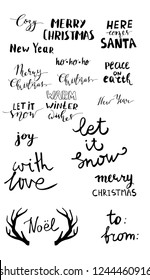 Cozy
MERRY
CHRISTMAS
HERE
comes
SANTA
New Year
ho·ho·ho
Merry
Christmas
Christmas
peace
on
earth
LET IT
snow
WARM
WINTER
wishes
New Year
joy
let
it
snow
with
love
merry
CHRISTMAS
Noël
to:
from:
1244460916